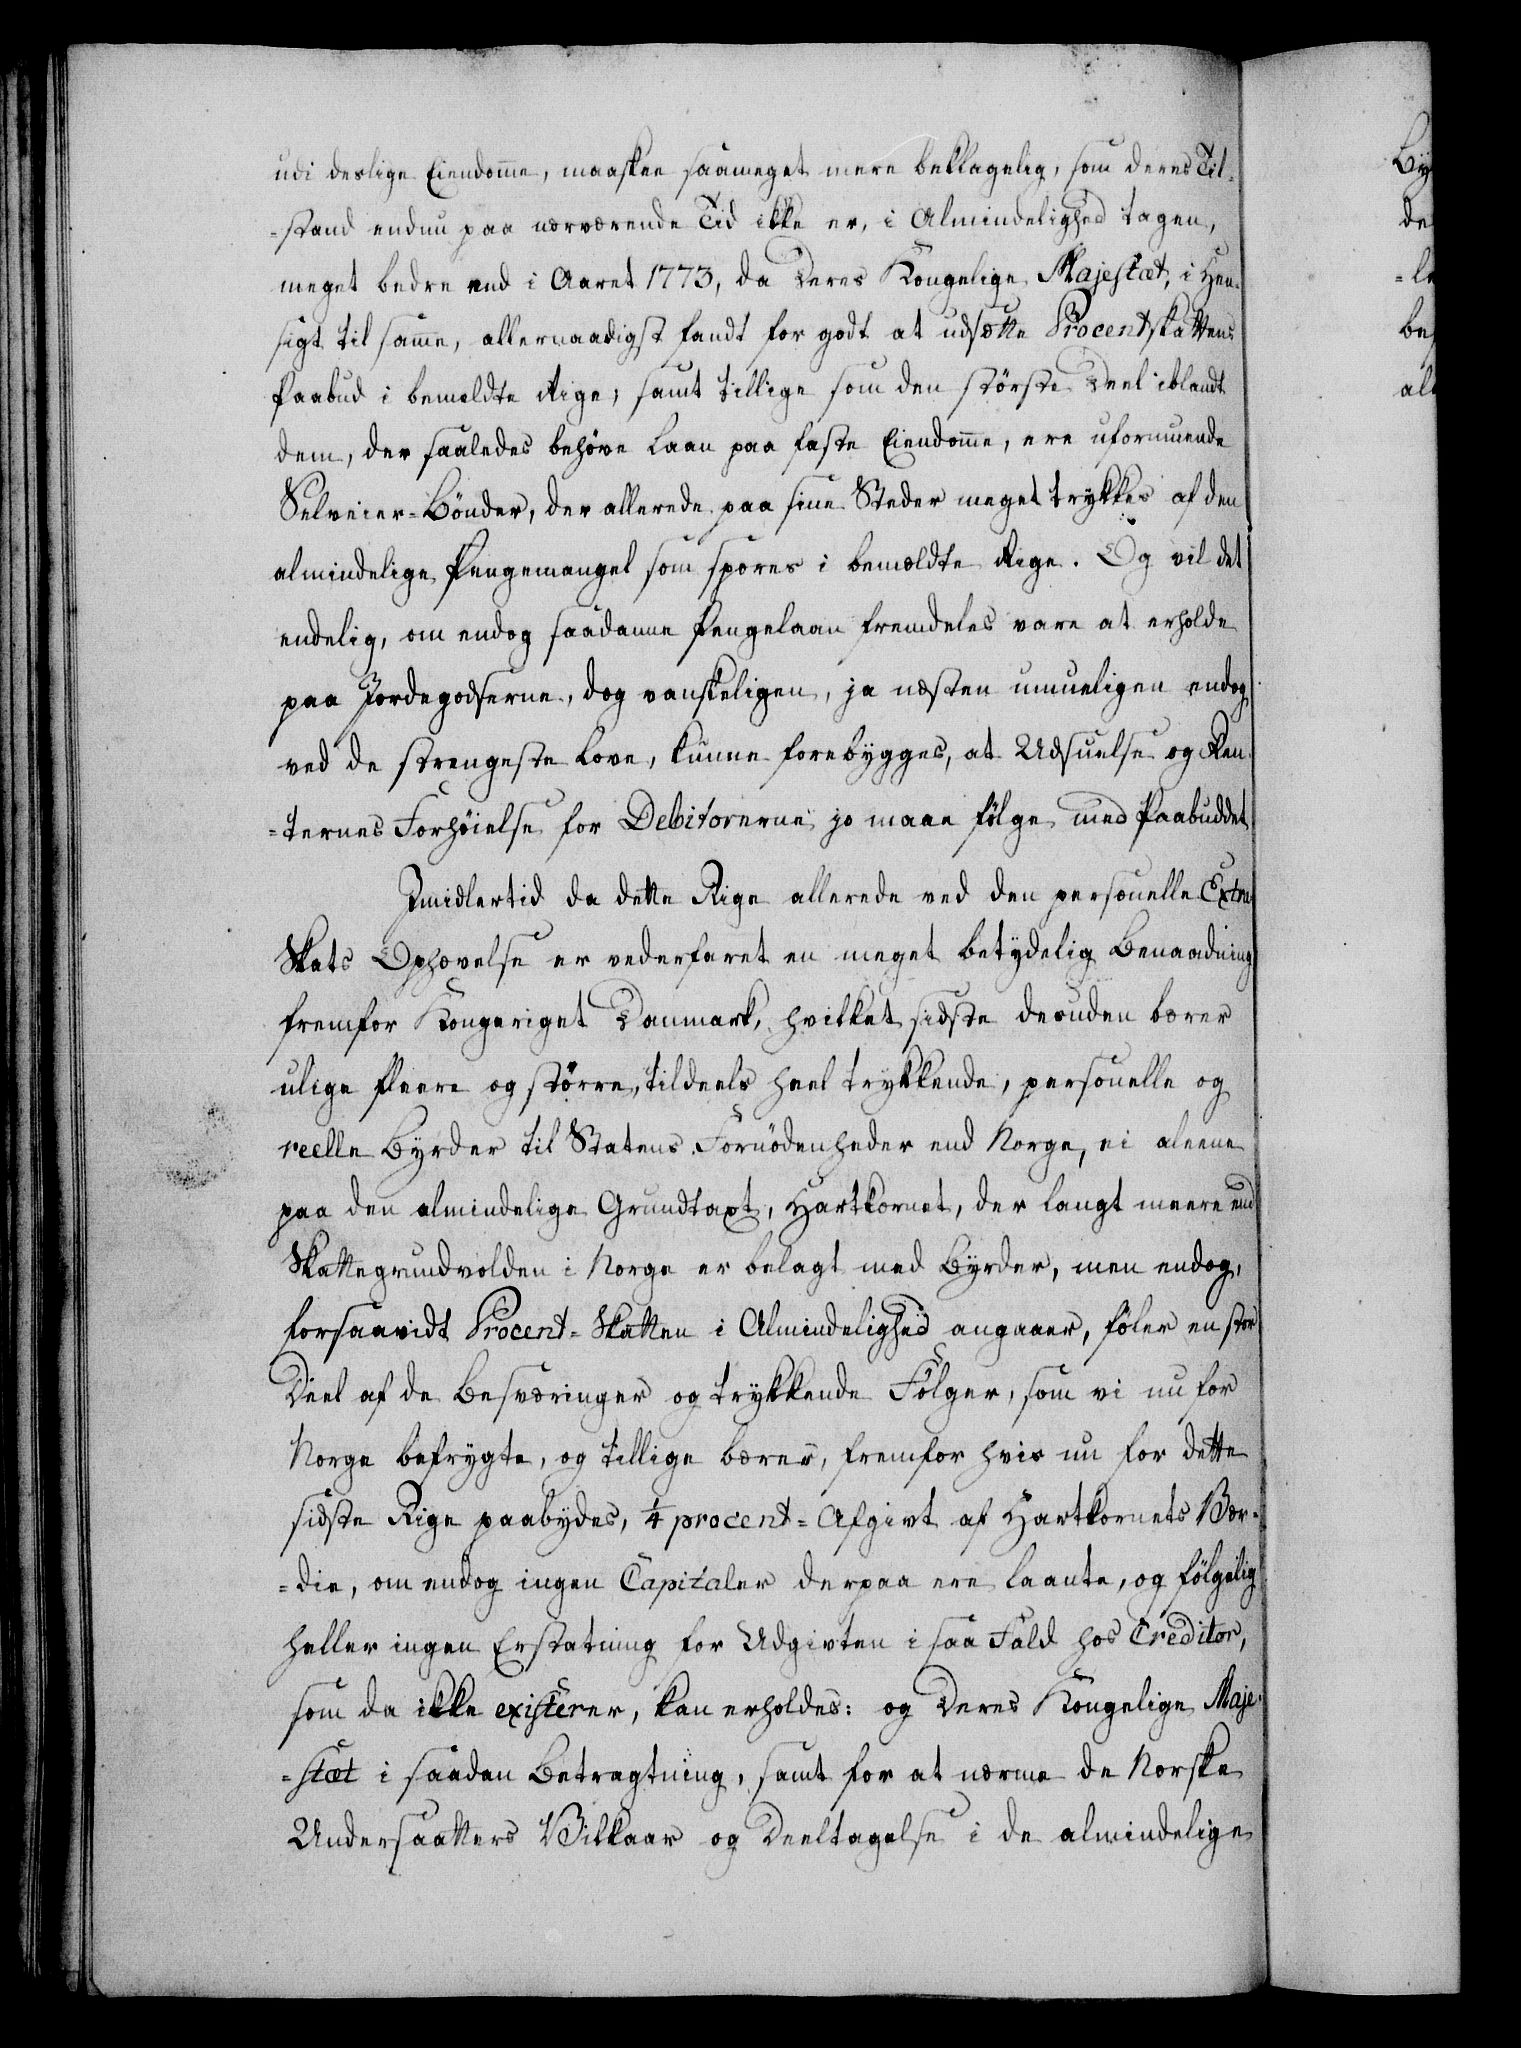 udi deslige Eiendomme, maaskee saameget mere beklagelig, som deres Til-
-stand endnu paa nærværende Tid ikke er, i Almindelighed tagen,
meget bedre end i Aaret 1773, da Deres Kongelige Majestæt, i Hen-
sigt til samme, allernaadigst fandt for godt at udsætte Procentskattens
Paabud i bemeldte Rige; samt tillige som den største Deel iblandt
dem, der saaledes behøve Laan paa faste Eiendomme, ere uformuende
Selveier-Bønder, der allerede paa sine Steder meget trykkes af den
almindelige Pengemangel som spores i bemældte Rige. Og vil det
endelig, om endog saadanne Pengelaan fremdeles vare at erholde
paa Jordegodserne, dog vanskeligen, ja næsten umueligen endog
ved de strengeste Love, kunne forebygges, at Udsuelse og Ren-
-ternes Forhøielse for Debitorerne jo maae følge med Paabuddet
Imidlertid da dette Rige allerede ved den personelle Extra
Skats Ophævelse er vederfaret en meget betydelig Benaadning
fremfor Kongeriget Danmark, hvilket sidste desuden bærer
ulige fleere og større, tildeels heel trykkende, personelle og
reelle Byrder til Statens Fornødenheder end Norge, ei aleene
paa den almindelige Grundtaxt, Hartkornet, der langt meere end
Skattegrundvolden i Norge er belagt med Byrder, men endog,
forsaavidt Procent-Skatten i Almindelighed angaaer, føler en stor
Deel af de Besværinger og trykkende Følger, som vi nu for
Norge befrygte, og tillige bærer, fremfor hvis nu for dette
sidste Rige paabydes, 1/4 procent-Afgivt af Hartkornets Vær-
-die, om endog ingen Capitaler derpaa ere laante, og følgelig
heller ingen Erstatning for Udgivten i saa Fald hos Creditor,
som da ikke existerer, kan erholdes: og Deres Kongelige Maje-
-stæt i saadan Betragtning, samt for at nærme de Norske
Undersaatters Vilkaar og Deeltagelse i de almindelige